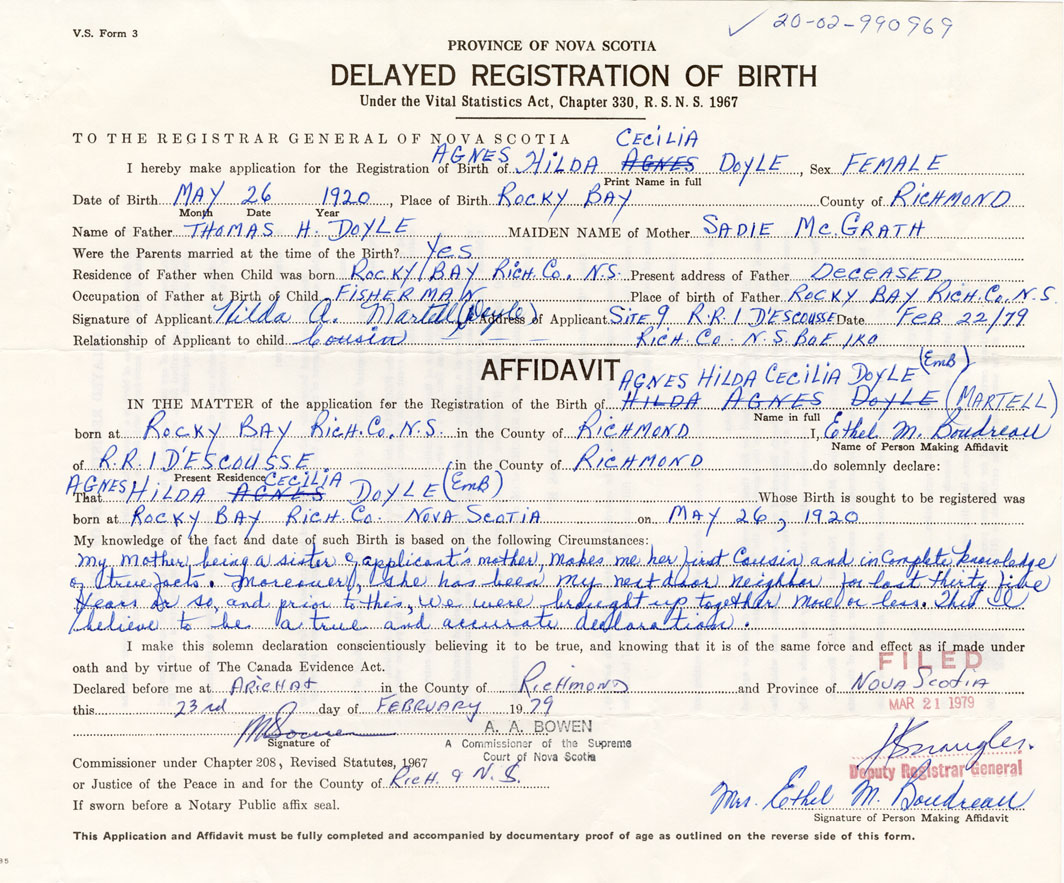 V.S. Form 3
✓ 20-02-990969
PROVINCE OF NOVA SCOTIA
DELAYED REGISTRATION OF BIRTH
Under the Vital Statistics Act, Chapter 330, R.S.N.S. 1967
TO THE REGISTRAR GENERAL OF NOVA SCOTIA
CECILIA
I hereby make application for the Registration of Birth of AGNES HILDA AGNES DOYLE, Sex FEMALE
Print Name in full
Date of Birth MAY 26 1920, Place of Birth ROCKY BAY County of RICHMOND
Month Date Year
Name of Father THOMAS H. DOYLE MAIDEN NAME of Mother SADIE Mc.GRATH
Were the Parents married at the time of the Birth? Yes
Residence of Father when Child was born ROCKY BAY RICH.CO. N.S. Present address of Father DECEASED
Occupation of Father at Birth of Child FISHERMAN Place of birth of Father ROCKY BAY RICH.CO.N.S.
Signature of Applicant Hilda A. Martell (Doyle) Address of Applicant SITE 9 R.R.1 D'ESCOUSSE Date FEB 22/79
Relationship of Applicant to child Cousin RICH.CO. N.S. BOE 1KO
AFFIDAVIT
AGNES HILDA CECILIA DOYLE (EmB)
IN THE MATTER of the application for the Registration of the Birth of HILDA AGNES DOYLE (MARTELL)
Name in full
born at ROCKY BAY RICH.CO.N.S. in the County of RICHMOND I, Ethel M. Boudreau
Name of Person Making Affidavit
of R.R.1 D'ESCOUSSE in the County of RICHMOND do solemnly declare:
Present Residence
CECILIA
That AGNES HILDA AGNES DOYLE (EmB) Whose Birth is sought to be registered was
born at ROCKY BAY RICH.CO. NOVA SCOTIA on MAY 26, 1920
My knowledge of the fact and date of such Birth is based on the following Circumstances:
My Mother, being a sister of applicant's mother, makes me her first Cousin and in Complete knowledge
of true facts. Moreover, she has been my next door neighbor for last thirty five
years or so, and prior to this, we were brought up together more or less. This I
believe to be a true and accurate declaration.
I make this solemn declaration conscientiously believing it to be true, and knowing that it is of the same force and effect as if made under
oath and by virtue of The Canada Evidence Act.
FILED
Declared before me at ARICHAT in the County of RICHMOND and Province of NOVA SCOTIA
MAR 21 1979
this 23rd day of FEBRUARY 1979
A. A. BOWEN
Signature of
A Commissioner of the Supreme
Court of Nova Scotia
Commissioner under Chapter 208, Revised Statutes, 1967
Deputy Registrar General
or Justice of the Peace in and for the County of RICH. N.S.
Mrs. Ethel M. Boudreau
If sworn before a Notary Public affix seal.
Signature of Person Making Affidavit
This Application and Affidavit must be fully completed and accompanied by documentary proof of age as outlined on the reverse side of this form.